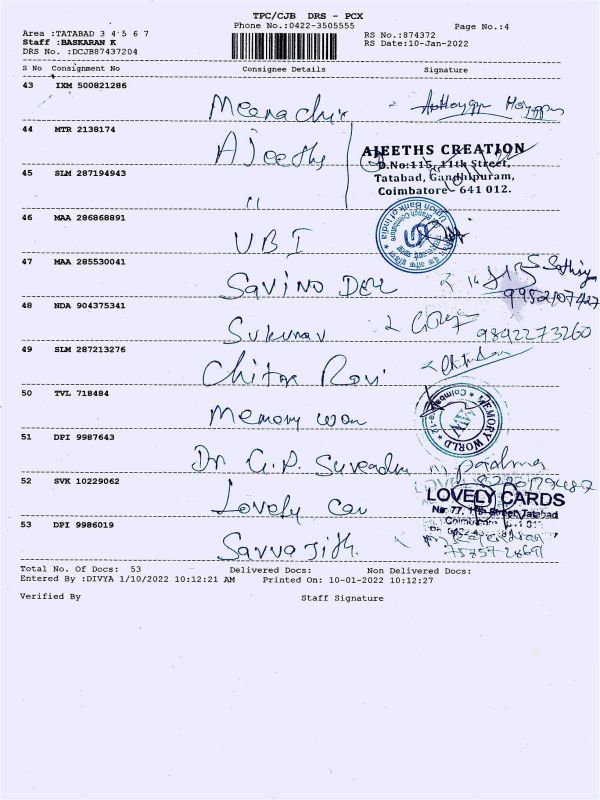 TPC/CJB DRS - PCX
Phone No.:0422-3505555
Page No.:4
Area :TATABAD 3 4 5 6 7
RS No.:874372
Staff :BASKARAN K
RS Date:10-Jan-2022
DRS No. :DCJB87437204
S No Consignment No Consignee Details Signature
43 IXM 500821286
Meenachi
44 MTR 2138174
Ajeeths
AJEETHS CREATION
D.No:115, 11th Street,
Tatabad, Gandhipuram,
Coimbatore - 641 012.
45 SLM 287194943
"
46 MAA 286868891
UBI
Union Bank of India
47 MAA 285530041
Savino Del
S. Sathiya
9952107427
48 NDA 904375341
Sukumar
9892273260
49 SLM 287213276
Chitra Ravi
50 TVL 718484
Memory won
MEMORY WORLD
51 DPI 9987643
Dr G.P. Surendra
52 SVK 10229062
Lovely Car
LOVELY CARDS
No: 77, 11th Street, Tatabad
53 DPI 9986019
Savvajith.
Total No. Of Docs: 53 Delivered Docs: Non Delivered Docs:
Entered By :DIVYA 1/10/2022 10:12:21 AM Printed On: 10-01-2022 10:12:27
Verified By Staff Signature